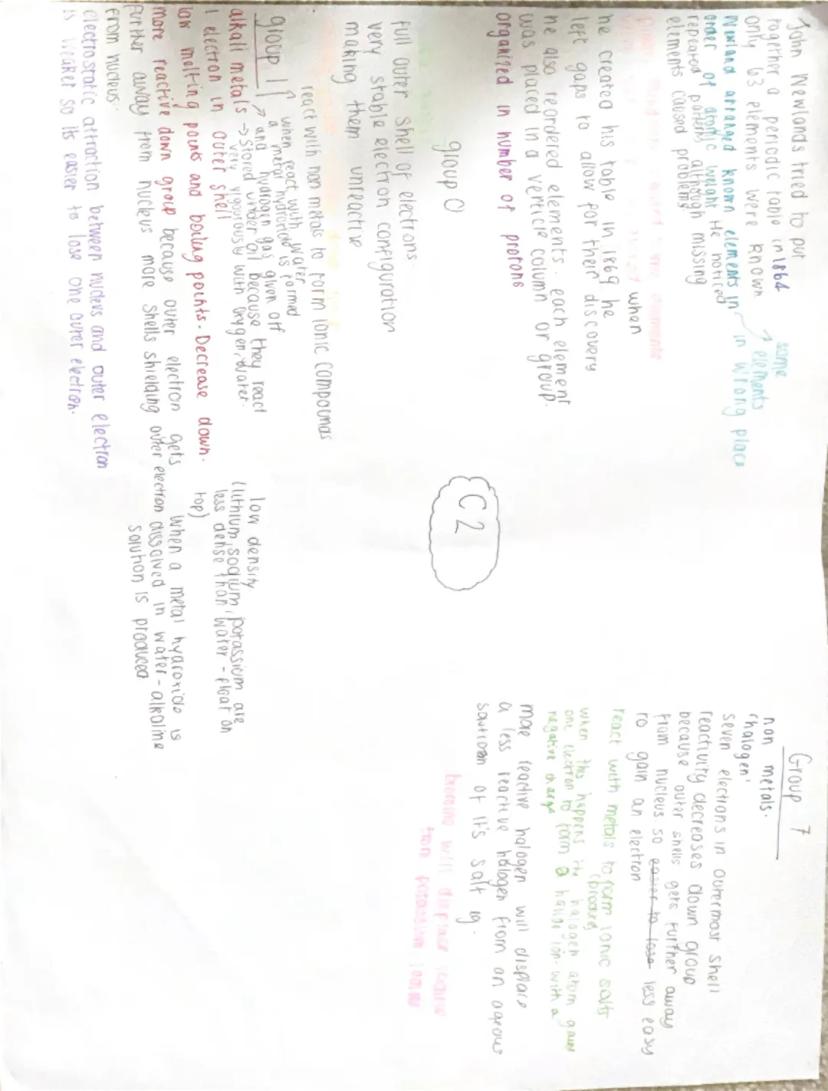 John Newlands tried to put
together a periodic table in 1864
only 63 elements were known
Newland arranged known elements in
order of atomic weight He noticed
repeated patterns although missing
elements caused problems
some
elements
in wrong place
when
he created his table in 1869 he
left gaps to allow for their discovery
he also reordered elements. each element
was placed in a verticle column or group.
organized in number of protons
group 0
full outer shell of electrons
very stable electron configuration
making them unreactive
C2
react with non metals to form ionic compounds
group 1
when react with water
a metal hydroxide is formed
and hydrogen gas given off
alkali metals → stored under oil because they react
very vigorously with oxygen, water.
1 electron in outer shell
low melting points and boiling points. Decrease down.
more reactive down group because outer electron gets
further away from nucleus more shells shielding outer electron
from nucleus.
electrostatic attraction between nucleus and outer electron
is weaker so its easier to lose one outer electron.
low density
(lithium, sodium, potassium are
less dense than water - float on
top)
when a metal hydroxide is
dissolved in water - alkaline
solution is produced
Group 7
non metals.
'halogen'
seven electrons in outermost shell
reactivity decreases down group
because outer shells gets further away
from nucleus so easier to lose less easy
to gain an electron
react with metals to form ionic salts
when this happens the halogen atom gains
one electron to form a halide ion with a
negative charge
more reactive halogen will displace
a less reactive halogen from an aqeous
soution of it's salt eg.
bromine will displace iodine
from potassium iodide